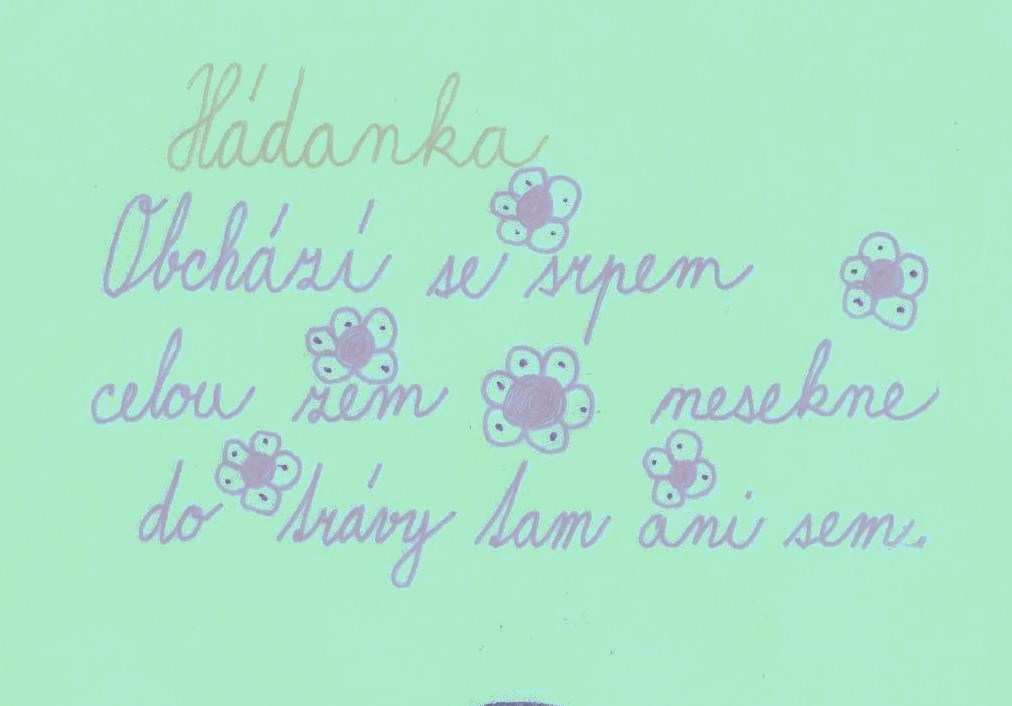 Hádanka
Obchází se srpem
celou zem nesekne
do trávy tam ani sem.